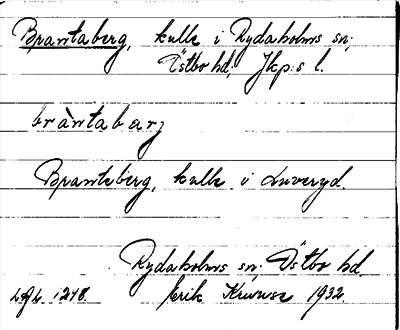 Brantaberg, kulle i Rydaholms sn;
Östbo hd, Jkp:s l.
bràntabarj
Branteberg, kulle i Luveryd.
Rydaholms sn; Östbo hd.
1248. Erik 1932.